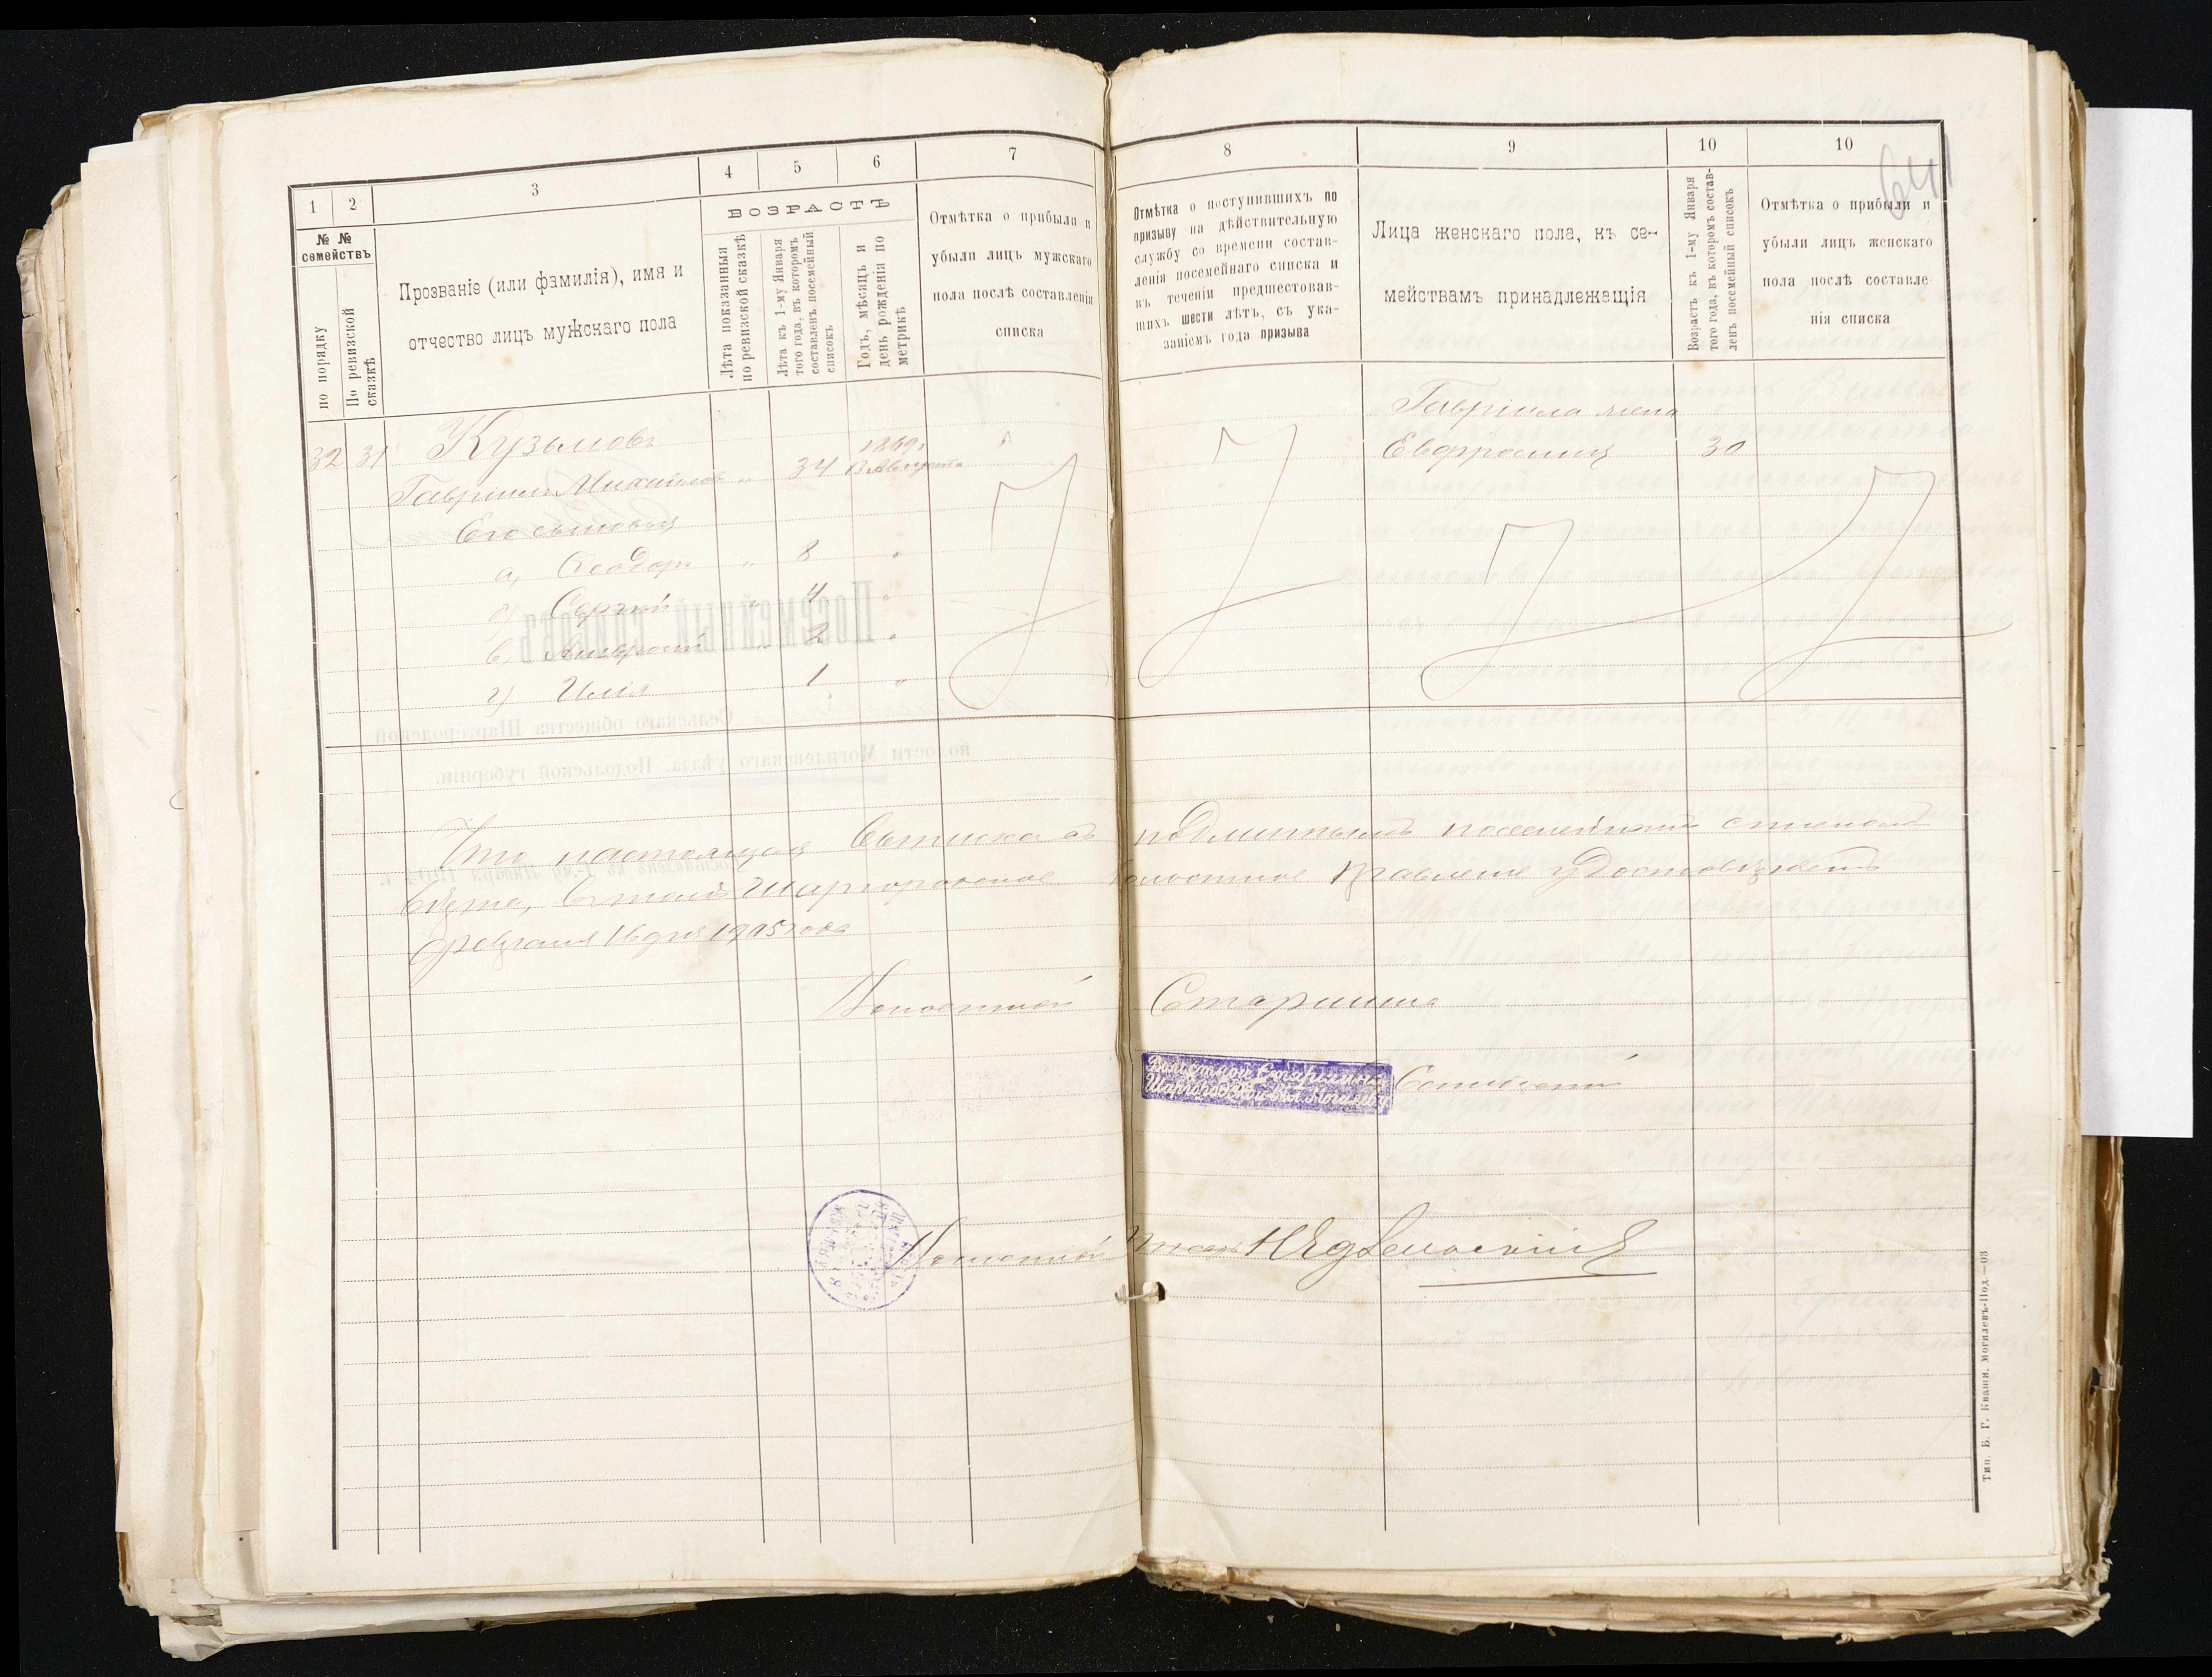 1
2
3
4
5
6
7
№ №
семействъ
по порядку
По ревизской
сказкѣ
Прозваніе (или фамилія), имя и
отчество лицъ мужскаго пола
ВОЗРАСТЪ
Лѣта показанныя
по ревизской сказкѣ
Лѣта къ 1-му Января
того года, въ которомъ
составленъ посемейный
списокъ
Годъ, мѣсяцъ и
день рожденія по
метрикѣ
Отмѣтка о прибыли и
убыли лицъ мужскаго
пола послѣ составленія
списка
32 31 Кузьмовъ 1869 г.
Гавріилъ Михайловъ „ 34 13 Августа
Его сыновья
а, Ѳеодоръ „ 8 „
б) Сергѣй „ 4 „
в, Амвросій „ 2 „
г) Илія 1 „
8
9
10
10
641
Отмѣтка о поступившихъ по
призыву на дѣйствительную
службу со времени состав-
ленія посемейнаго списка и
въ теченіи предшествовав-
шихъ шести лѣтъ, съ ука-
заніемъ года призыва
Лица женскаго пола, къ се-
мействамъ принадлежащія
Возрастъ къ 1-му Января
того года, въ которомъ состав-
ленъ посемейный списокъ
Отмѣтка о прибыли и
убыли лицъ женскаго
пола послѣ составле-
нія списка
Гавріила жена
Евфросинія 30
Что настоящая выписка съ подлиннымъ посемейнымъ спискомъ
вѣрна, въ томъ Шаргородское Волостное Правленіе удостовѣряетъ
Февраля 16 дня 1905 года
Волостной Старшина
Волостной Старшина
Шаргородской вол. Могилев. у.
Волостной Писарь
Тип. Б. Г. Кваши. Могилевъ-Под.—03
Посемейный списокъ
Сельскаго общества Шаргородской
волости Могилевскаго уѣзда, Подольской губерніи.